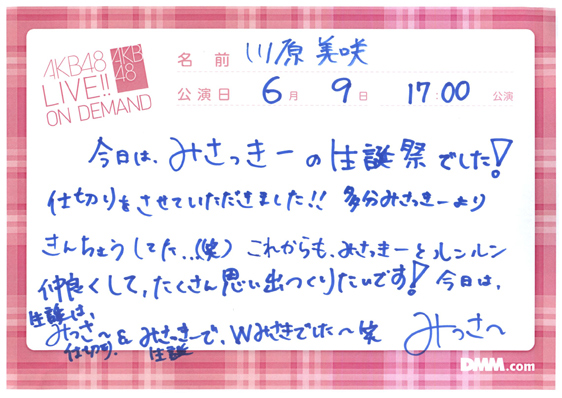 AKB48
LIVE!!
ON DEMAND
AKB
48
名前 川原美咲
公演日 6月 9日 17:00 公演
今日は、みさっきーの生誕祭でした!
仕切りをさせていただきました!! 多分みさっきーより
きんちょうしてた...(笑) これからも、みさっきーとルンルン
仲良くして、たくさん思い出つくりたいです! 今日は、
生誕は、
みっさ〜&みさっきーで、Wみさきでした〜笑 みっさ〜
仕切り. 生誕
DMM.com